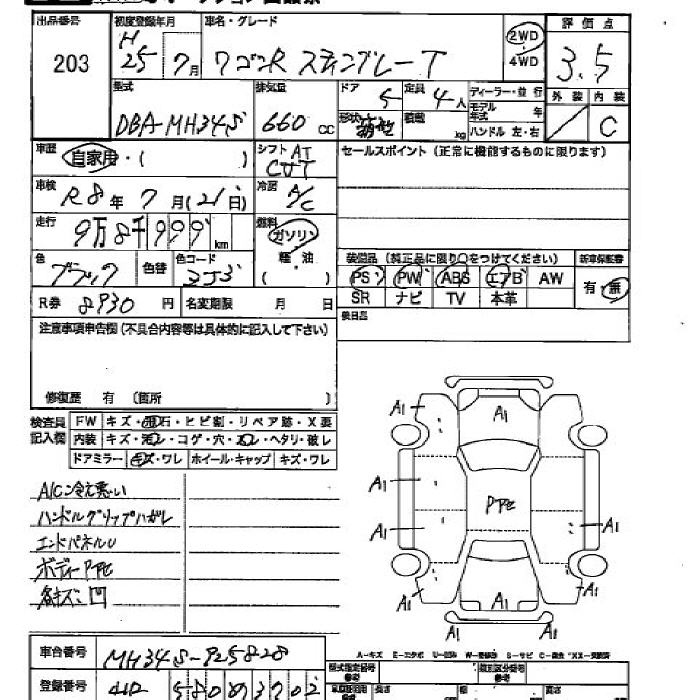 出品番号 初度登録年月 車名・グレード 評価点
203 H25 7月 ワゴンR スティングレー T 2WD・4WD 3.5
型式 排気量 ドア 5 定員 4人 ディーラー・並行 外装 内装
DBA-MH34S 660cc 形状 積載 kg モデル年式 年 ハンドル 左・右 C
車歴 自家用・( ) シフト AT CVT セールスポイント (正常に機能するものに限ります)
車検 R8年 7月(21日) 冷房 A/C
走行 9万8千999km 燃料 ガソリン
軽油
色 ブラック 色替 色コード ZJ3 ( ) 装備品 (純正品に限り○をつけてください) 新車保証書
PS PW ABS エアB AW 有・無
R券 8930円 名変期限 月 日 SR ナビ TV 本革
注意事項申告欄 (不具合内容等は具体的に記入して下さい) 後日品
修復歴 有 (箇所 )
検査員記入欄 FW キズ・飛石・ヒビ割・リペア跡・X要
内装 キズ・汚レ・コゲ・穴・スレ・ヘタリ・破レ
ドアミラー キズ・ワレ ホイール・キャップ キズ・ワレ
A1 A1
A/C冷え悪い A1
ハンドルグリップハガレ PTペ
エンドパネルU A1 A1
ボディーPTペ
各キズ凹 A1 A1 A1
A1 A1
車台番号 MH34S-925828
A-キズ E-エクボ U-凹み W-修理跡 S-サビ C-腐食
型式指定番号 参考 類別区分番号 参考
登録番号 580 3702 長さ 幅 高さ